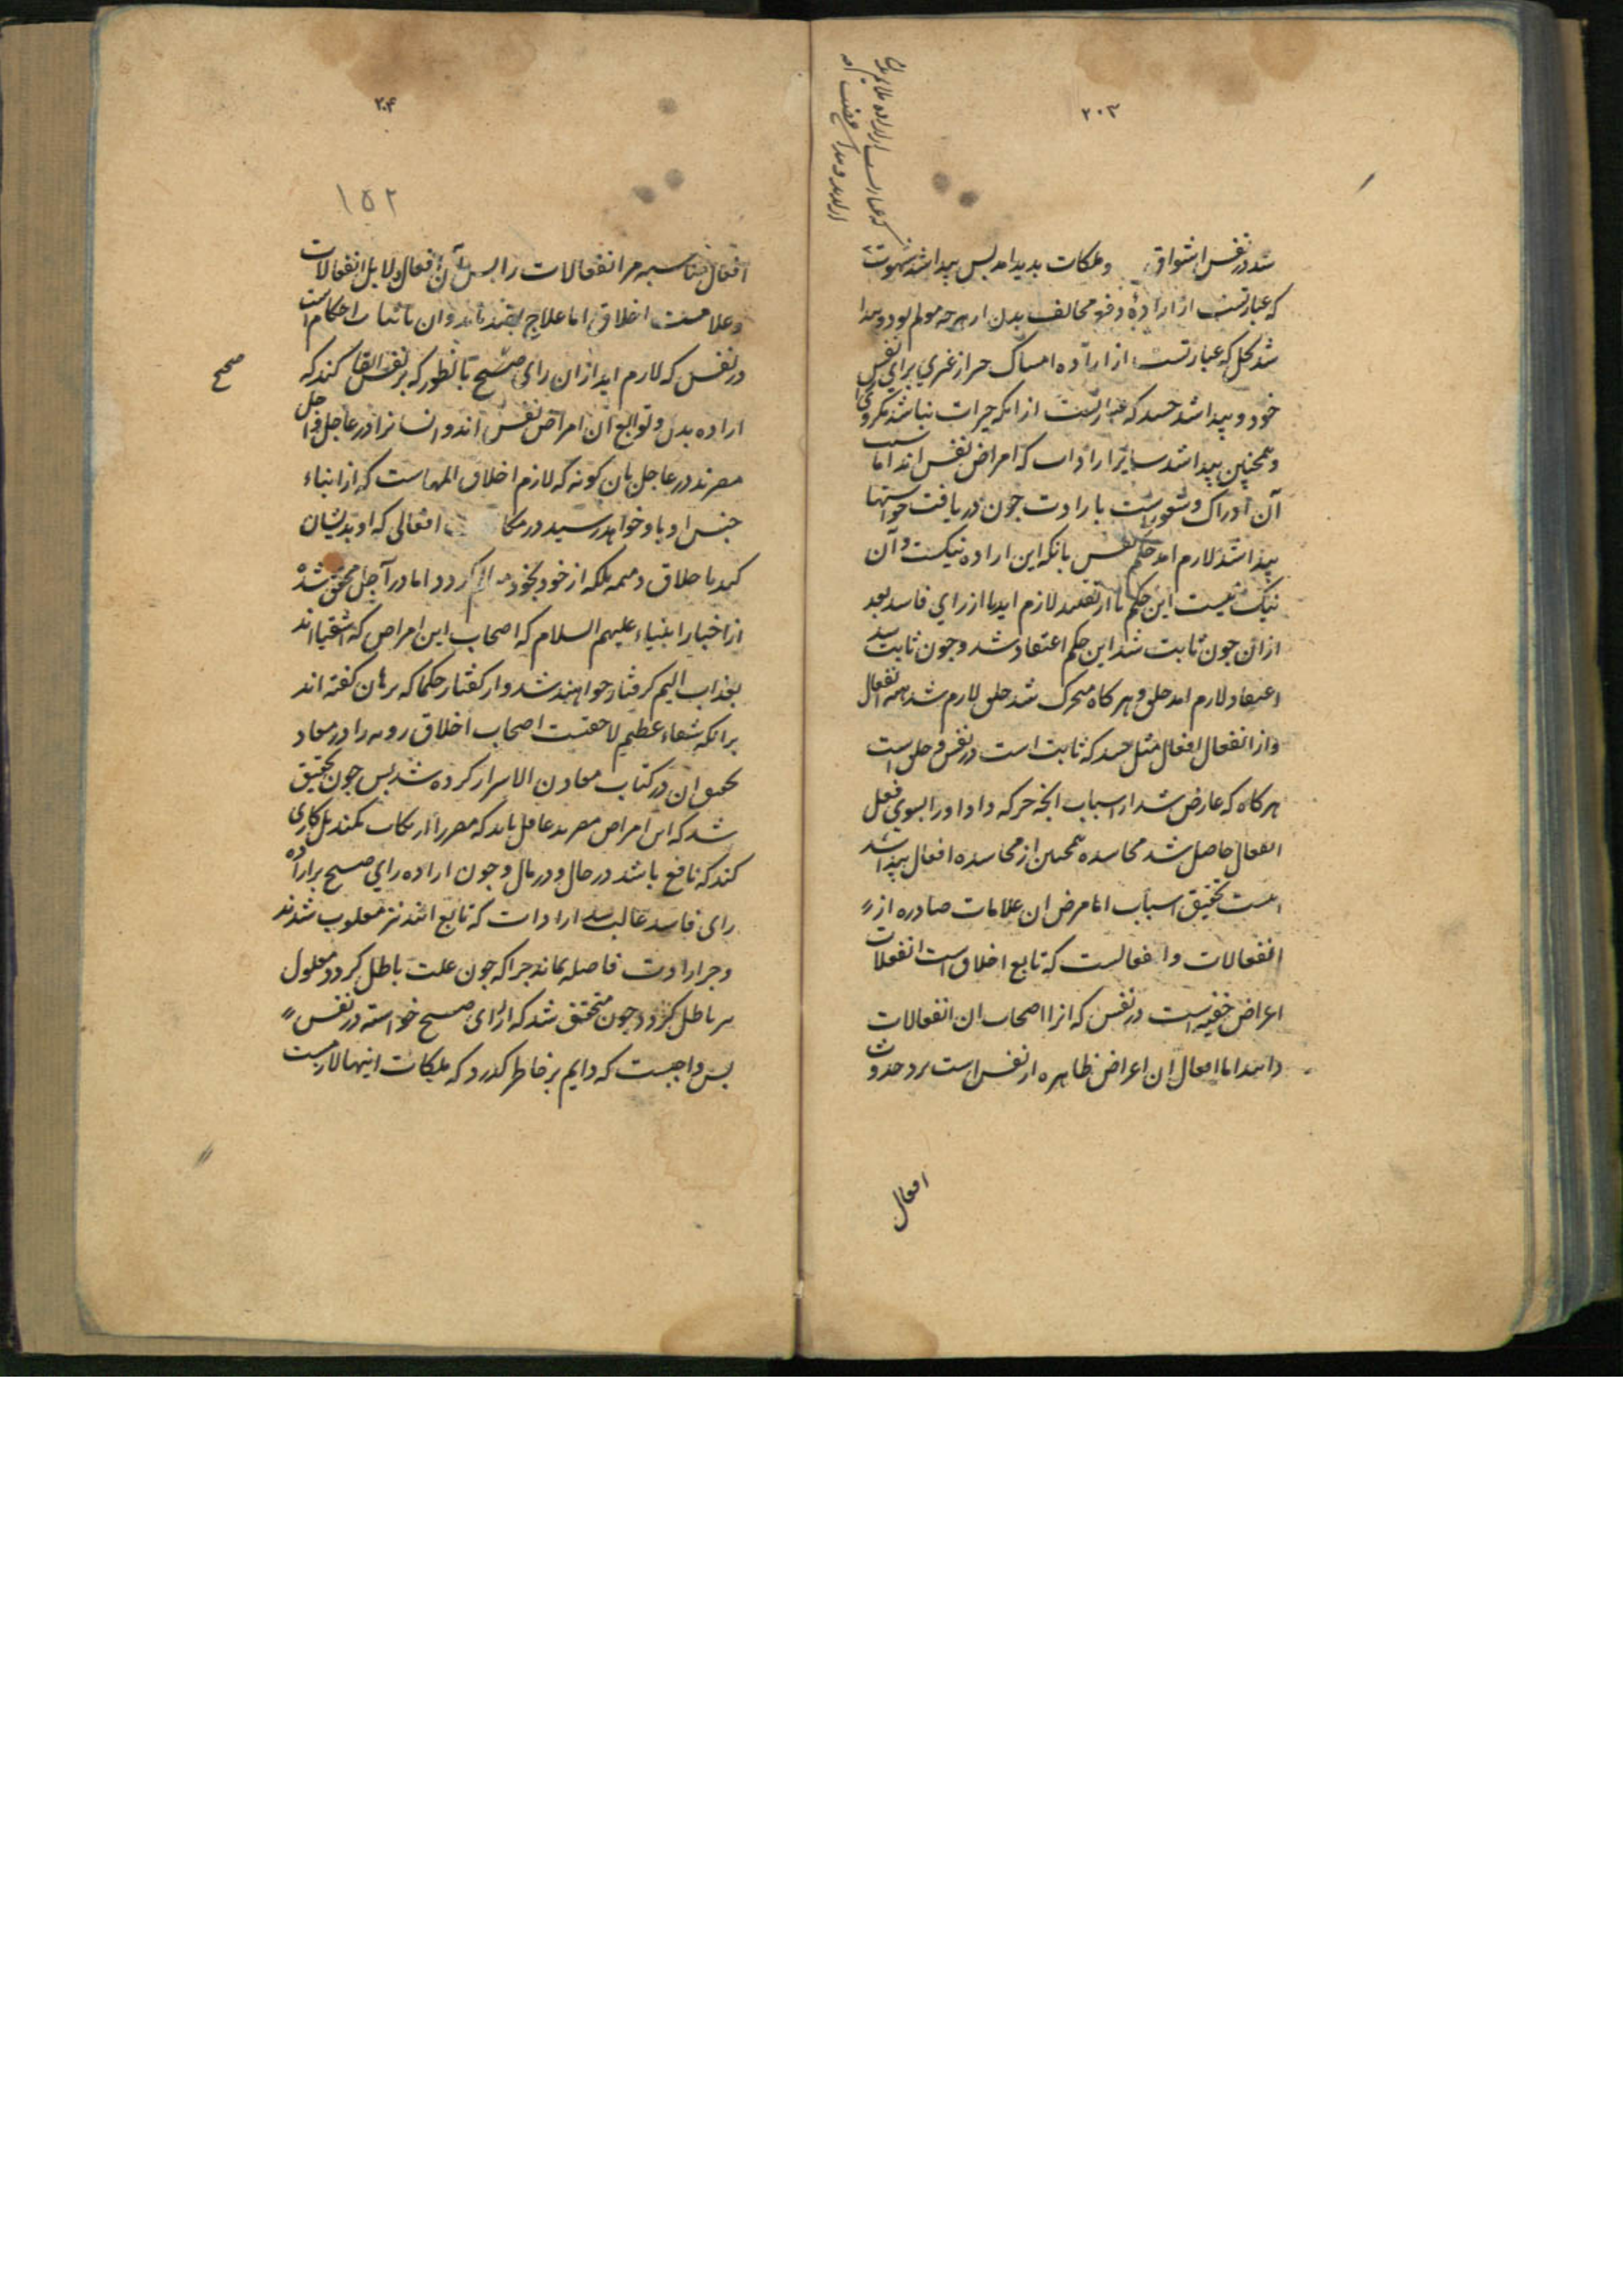 ۲۰۳
شد در نفس اشتواق وملکات بدید امد پس پیدا شد شهوت
که عبارتست از ارادهٔ دفع مخالف بدن از هرچه مولم بود و پیدا
شد بخل که عبارتست از اراده امساک خیر از غیری برای نفس
خود و پیدا شد حسد که عبارتست از انکه خیرات نباشد مکر ویرا
و همچنین پیدا شد سایر ارادات که امراض نفس اند اما سبب
آن ادراک و شعورست بارادت چون دریافت خواستها
پیدا شد لازم امد حکم نفس بانکه این اراده نیکست و آن
نیک نیست این حکم یا از تقلید لازم اید یا از رای فاسد بعد
ازان چون ثابت شد این حکم اعتقاد شد و چون ثابت شد
اعتقاد لازم امد خلق و هر کاه متحرک شد خلق لازم شد همه انفعال
واز انفعال افعال مثل حسد که ثابت است در نفس و خلق است
هر کاه که عارض شد از اسباب انچه حرکه داد اورا بسوی فعل
انفعال حاصل شد محاسده همچنین از محاسده افعال پیدا شد
اینست تحقیق اسباب اما مرض ان علامات صادره از
انفعالات وافعالست که تابع اخلاق است انفعالات
اعراض خفیه است در نفس که انرا اصحاب ان انفعالات
دانند اما افعال ان اعراض ظاهره از نفس است نزد حدوث
افعال
۲۰۴
۱۵۲
افعال مناسبه مر انفعالات را پس آن افعال دلایل انفعالات
وعلامت اخلاق اما علاج بضد باید وان باثبات احکام است
در نفس که لازم اید ازان رای صحیح بانطور که بر نفس القا کند که
صحیح
اراده بدن و توابع آن امراض نفس اند و انسانرا در عاجل و اجل
مضرند در عاجل بان کونه که لازم اخلاق المهاست که از ابناء
جنس او باو خواهد رسید در مکا افعالی که او بدیشان
کند باخلاق ذمیمه بلکه از خود بخود کردد اما در آجل محقق شده
از اخبار انبیاء علیهم السلام که اصحاب این امراض که اشقیا اند
بعذاب الیم کرفتار خواهند شد و از کفتار حکما که برهان کفته اند
برانکه شقاء عظیم لاحقست اصحاب اخلاق ردیه را در معاد
تحقیق ان در کتاب معادن الاسرار کرده شد پس چون تحقیق
شد که این امراض مضرند عاقل باید که مضر را ارتکاب نکند بل کاری
کند که نافع باشد در حال و در مال و چون اراده رای صحیح بر اراده
رای فاسد غالب شد ارادات که تابع انند نیز مغلوب شدند
وجز ارادت فاصله نماند چرا که چون علت باطل کردد معلول
نیز باطل کردد چون متحقق شد که از رای صحیح خواسته در نفس
پس واجبست که دایم بر خاطر کذرد که ملکات اینها لازمست